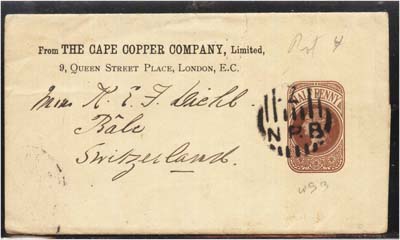 From THE CAPE COPPER COMPANY, Limited,
9, QUEEN STREET PLACE, LONDON, E.C.
K. E. F. Diehl.
Bâle
Switzerland.
HALFPENNY
N.P.B